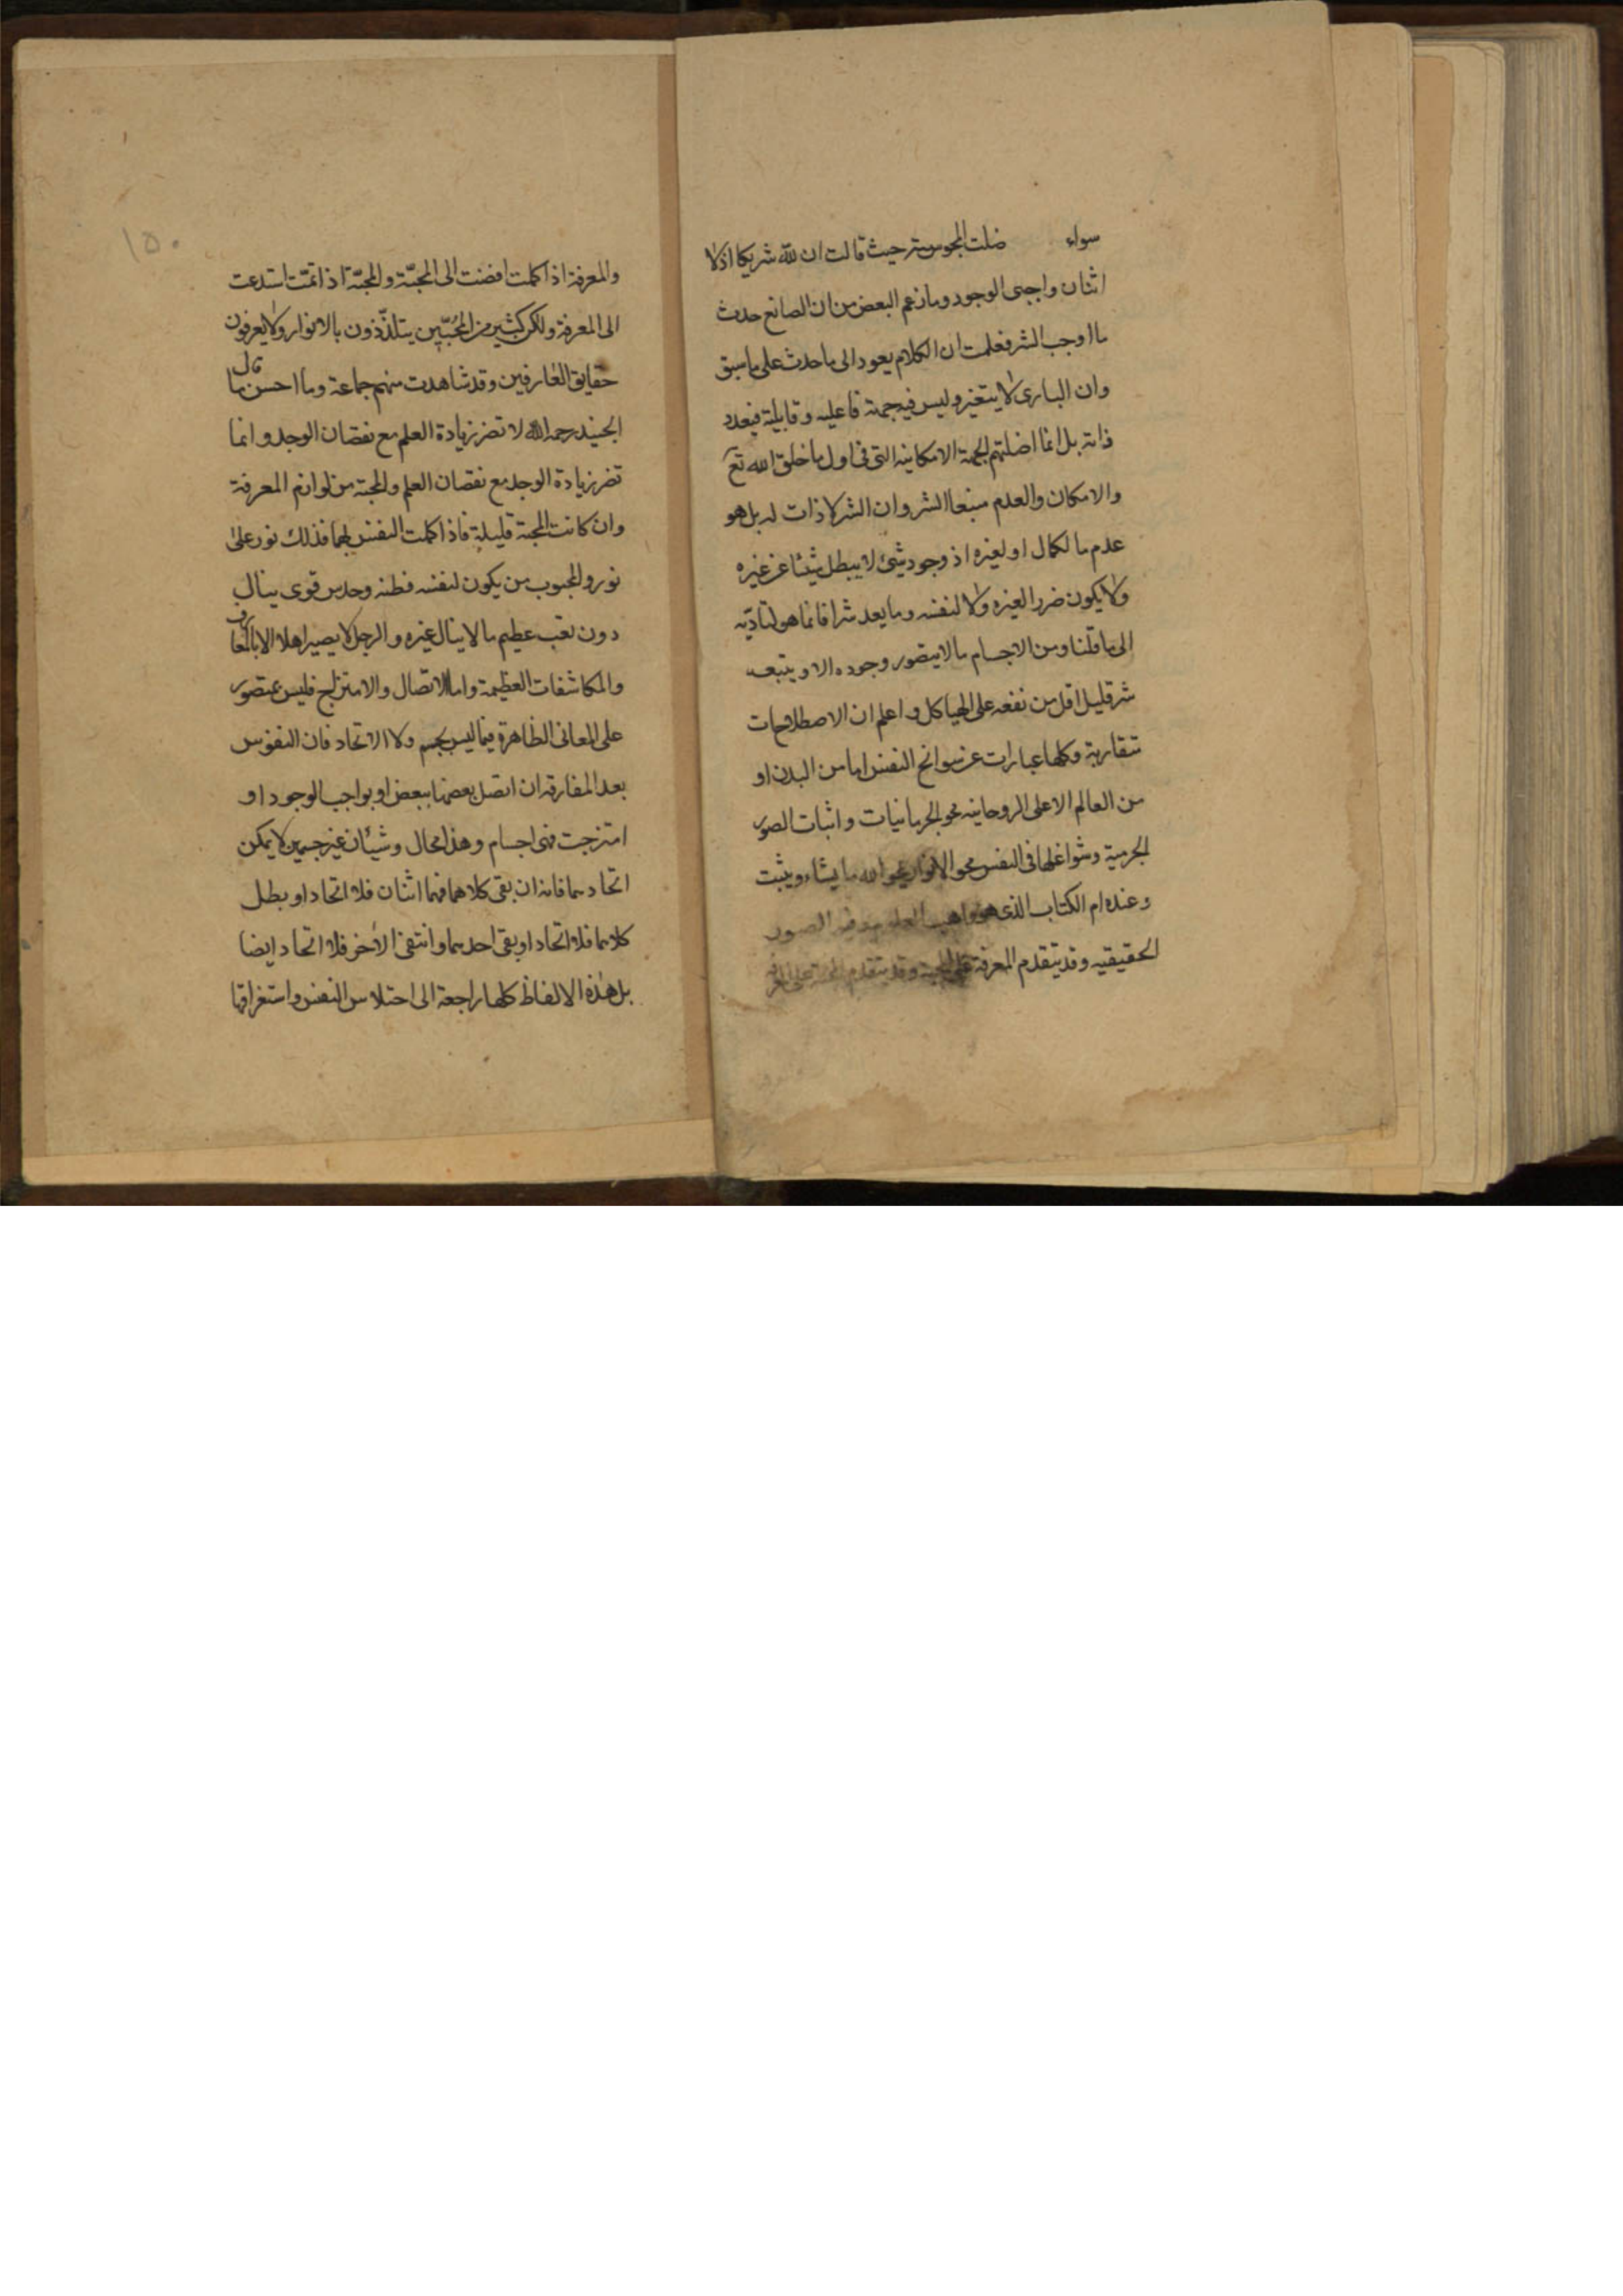 سواء ضلت المجوس حيث قالت ان لله شريكا اذ لا
اثنان واجبى الوجود وما زعم البعض من ان الصانع حدث
ما اوجب الشر فعلمت ان الكلام يعود الى ما حدث على ما سبق
وان البارى لا يتغير وليس فيه جهة فاعليه وقابلية فيعدد
ذاته بل انما اضلتهم الجهة الامكانيه التى فى اول ما خلق الله تع
والامكان والعدم منبعا الشر وان الشر لا ذات له بل هو
عدم ما لكمال او لغيره اذ وجود شئ لا يبطل شيئا عن غيره
ولا يكون ضررا لغيره ولا لنفسه وما يعد شرا فانما هو لتاديه
الى ما قلنا ومن الاجسام ما لا يتصور وجوده الا ويتبعه
شر قليل اقل من نفعه على الهياكل واعلم ان الاصطلاحات
متقاربة وكلها عبارات عن سوانح النفس اما من البدن او
من العالم الاعلى الروحانيه محو الجرمانيات واثبات الصور
الجرمية وشواغلها فى النفس محو الانوار يمحو الله ما يشاء ويثبت
وعنده ام الكتاب الذى هو واهب العلم الصور
الحقيقيه وقد يتقدم المعرفة على المحبة وقد يتقدم
١٥٠
والمعرفة اذا كملت افضت الى المحبّة والمحبّة اذا تمّت استدعت
الى المعرفة ولكن كثير من المُحبّين يتلذّذون بالانوار ولا يعرفون
حقايق العارفين وقد شاهدت منهم جماعة وما احسن ما قال
الجنيد رحمه الله لا تضر زيادة العلم مع نقصان الوجد وانما
تضر زيادة الوجد مع نقصان العلم والمحبة من لوازم المعرفة
وان كانت المحبة قليلة فاذا كملت النفس بهما فذلك نور على
نور والمحبوب من يكون لنفسه فطنه وحدس قوى ينال
دون تعب عظيم ما لا ينال غيره والرجل لا يصير اهلا الا بالمعارف
والمكاشفات العظيمة واما الاتصال والامتزاج فليس بمتصور
على المعانى الظاهرة فيما ليس بجسم ولا الاتحاد فان النفوس
بعد المفارقه ان اتصل بعضها ببعض او بواجب الوجود او
امتزجت فهى اجسام وهذا محال وشيئان غير جسمين لا يمكن
اتحادهما فانه ان بقى كلاهما فهما اثنان فلا اتحاد او بطل
كلاهما فلا اتحاد او بقى احدهما وانتفى الآخر فلا اتحاد ايضا
بل هذه الالفاظ كلها راجعة الى اختلاس النفس واستغراقها